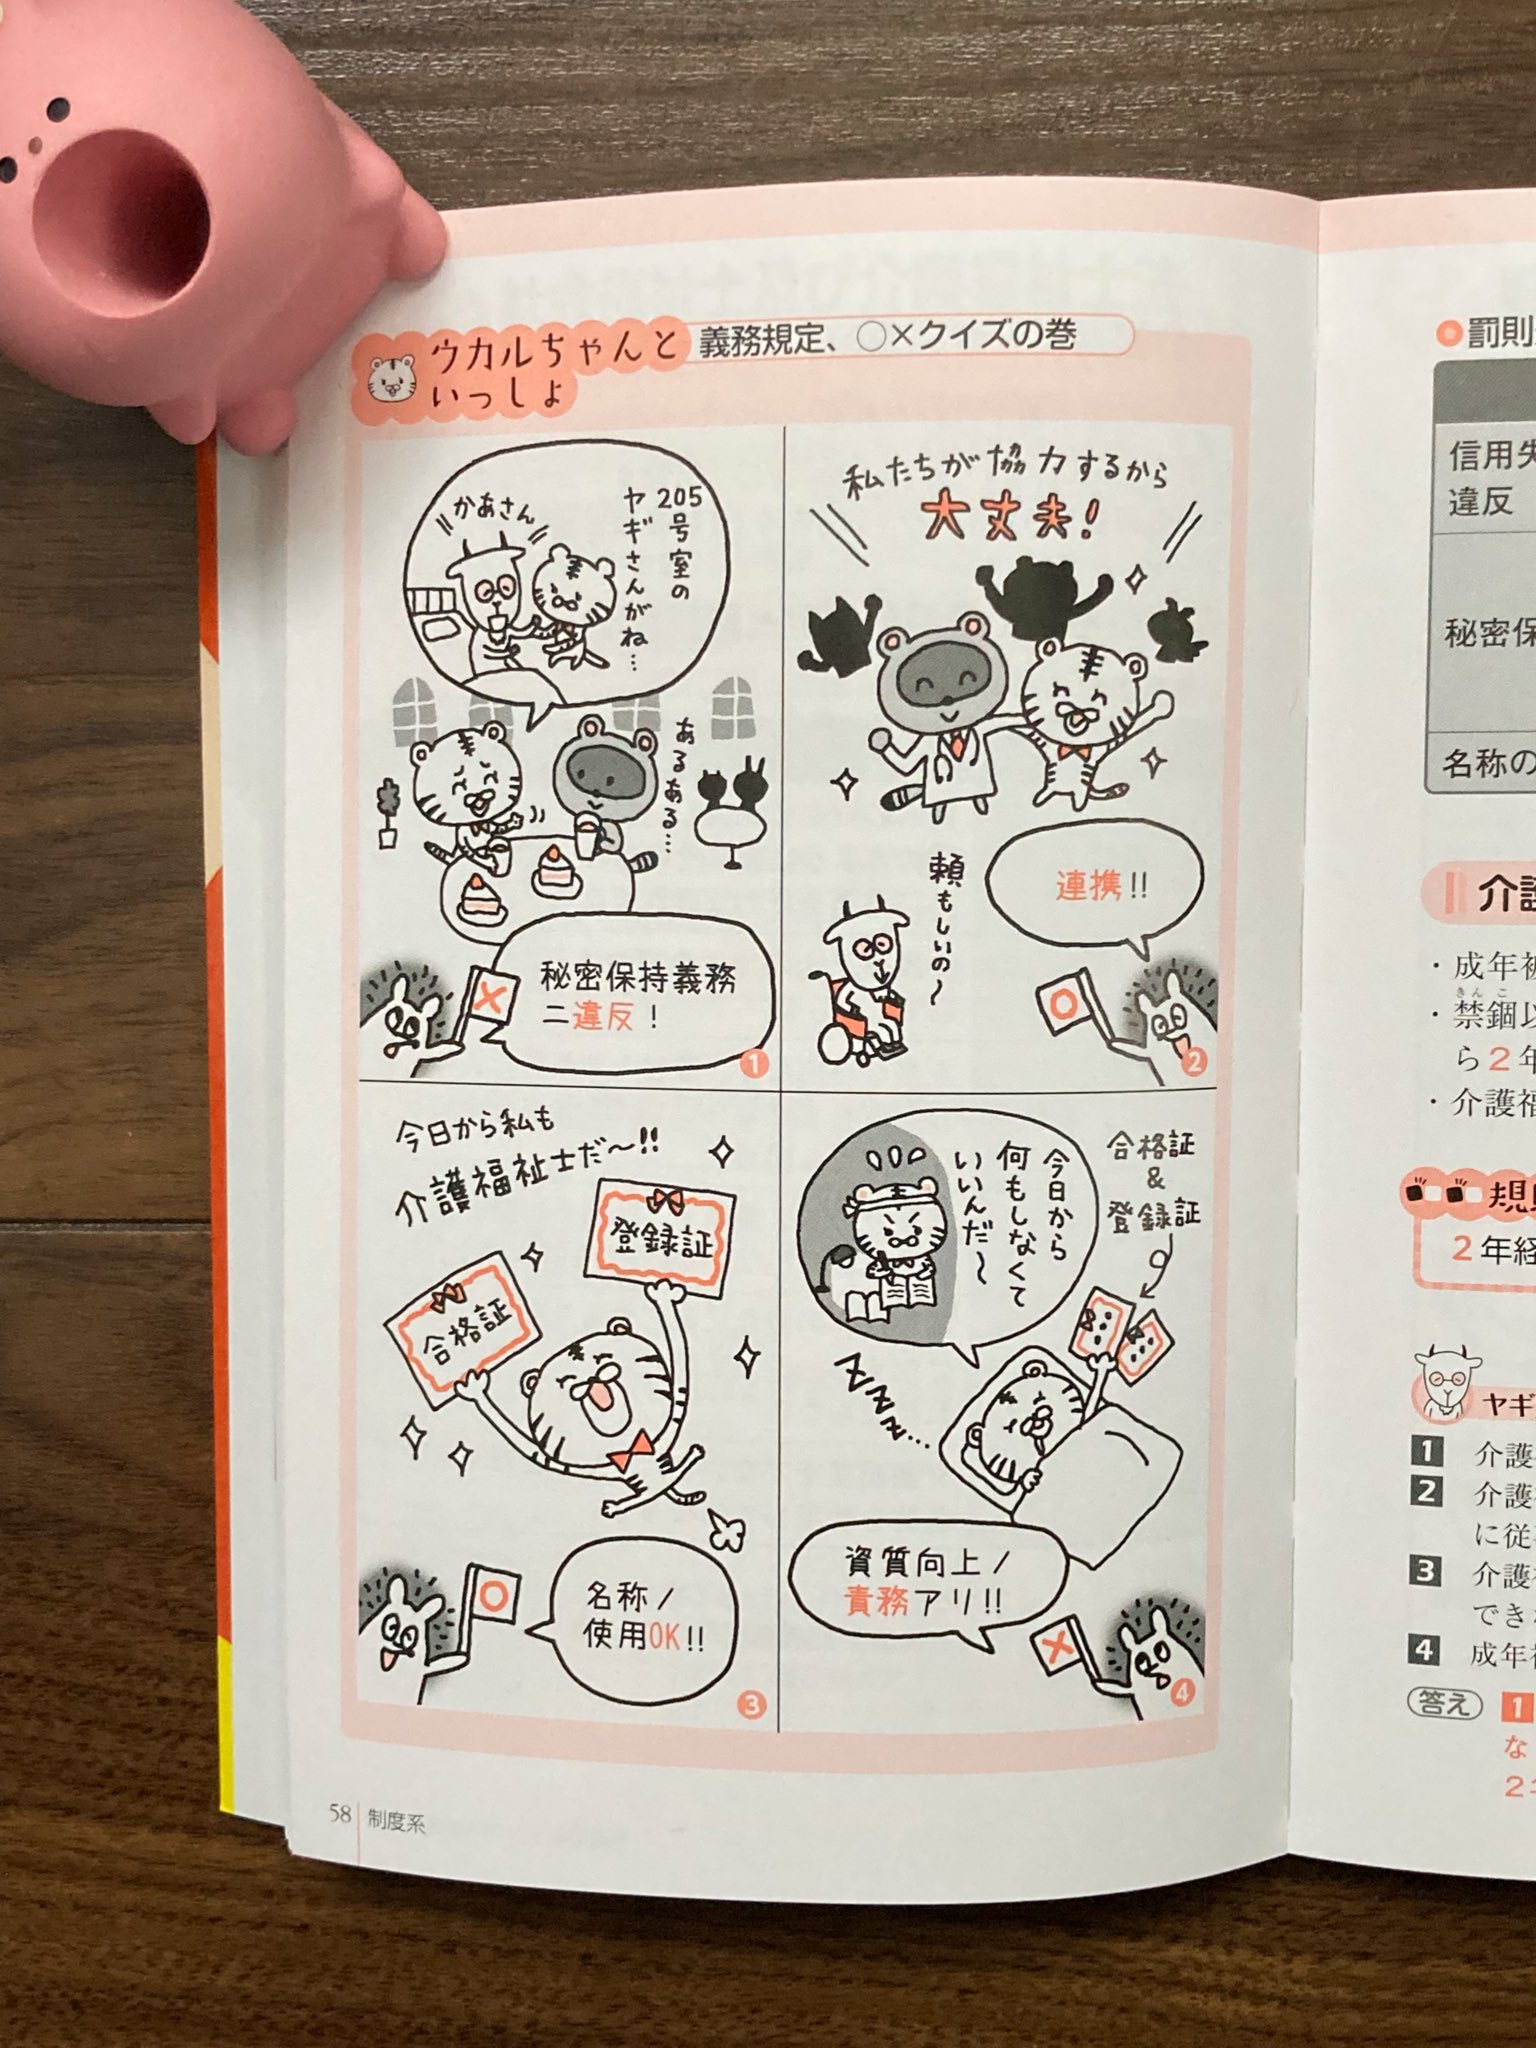 ウカルちゃんと
いっしょ
義務規定、○×クイズの巻
205号室の
ヤギさんがね…
かあさん
あるある…
秘密保持義務
ニ違反!
1
私たちが協力するから
大丈夫!
頼もしいの～
連携!!
2
今日から私も
介護福祉士だ～!!
合格証
登録証
名称ノ
使用OK!!
3
今日から
何もしなくて
いいんだ～
合格証
&
登録証
ZZZZ…
資質向上ノ
責務アリ!!
4
58 制度系
罰則
信用失
違反
秘密保
名称の
介護
・成年被
・禁錮以
きんこ
ら2年
・介護福
規
2年経
ヤギ
1 介護
2 介護
に従
3 介護
でき
4 成年被
答え 1
な
2